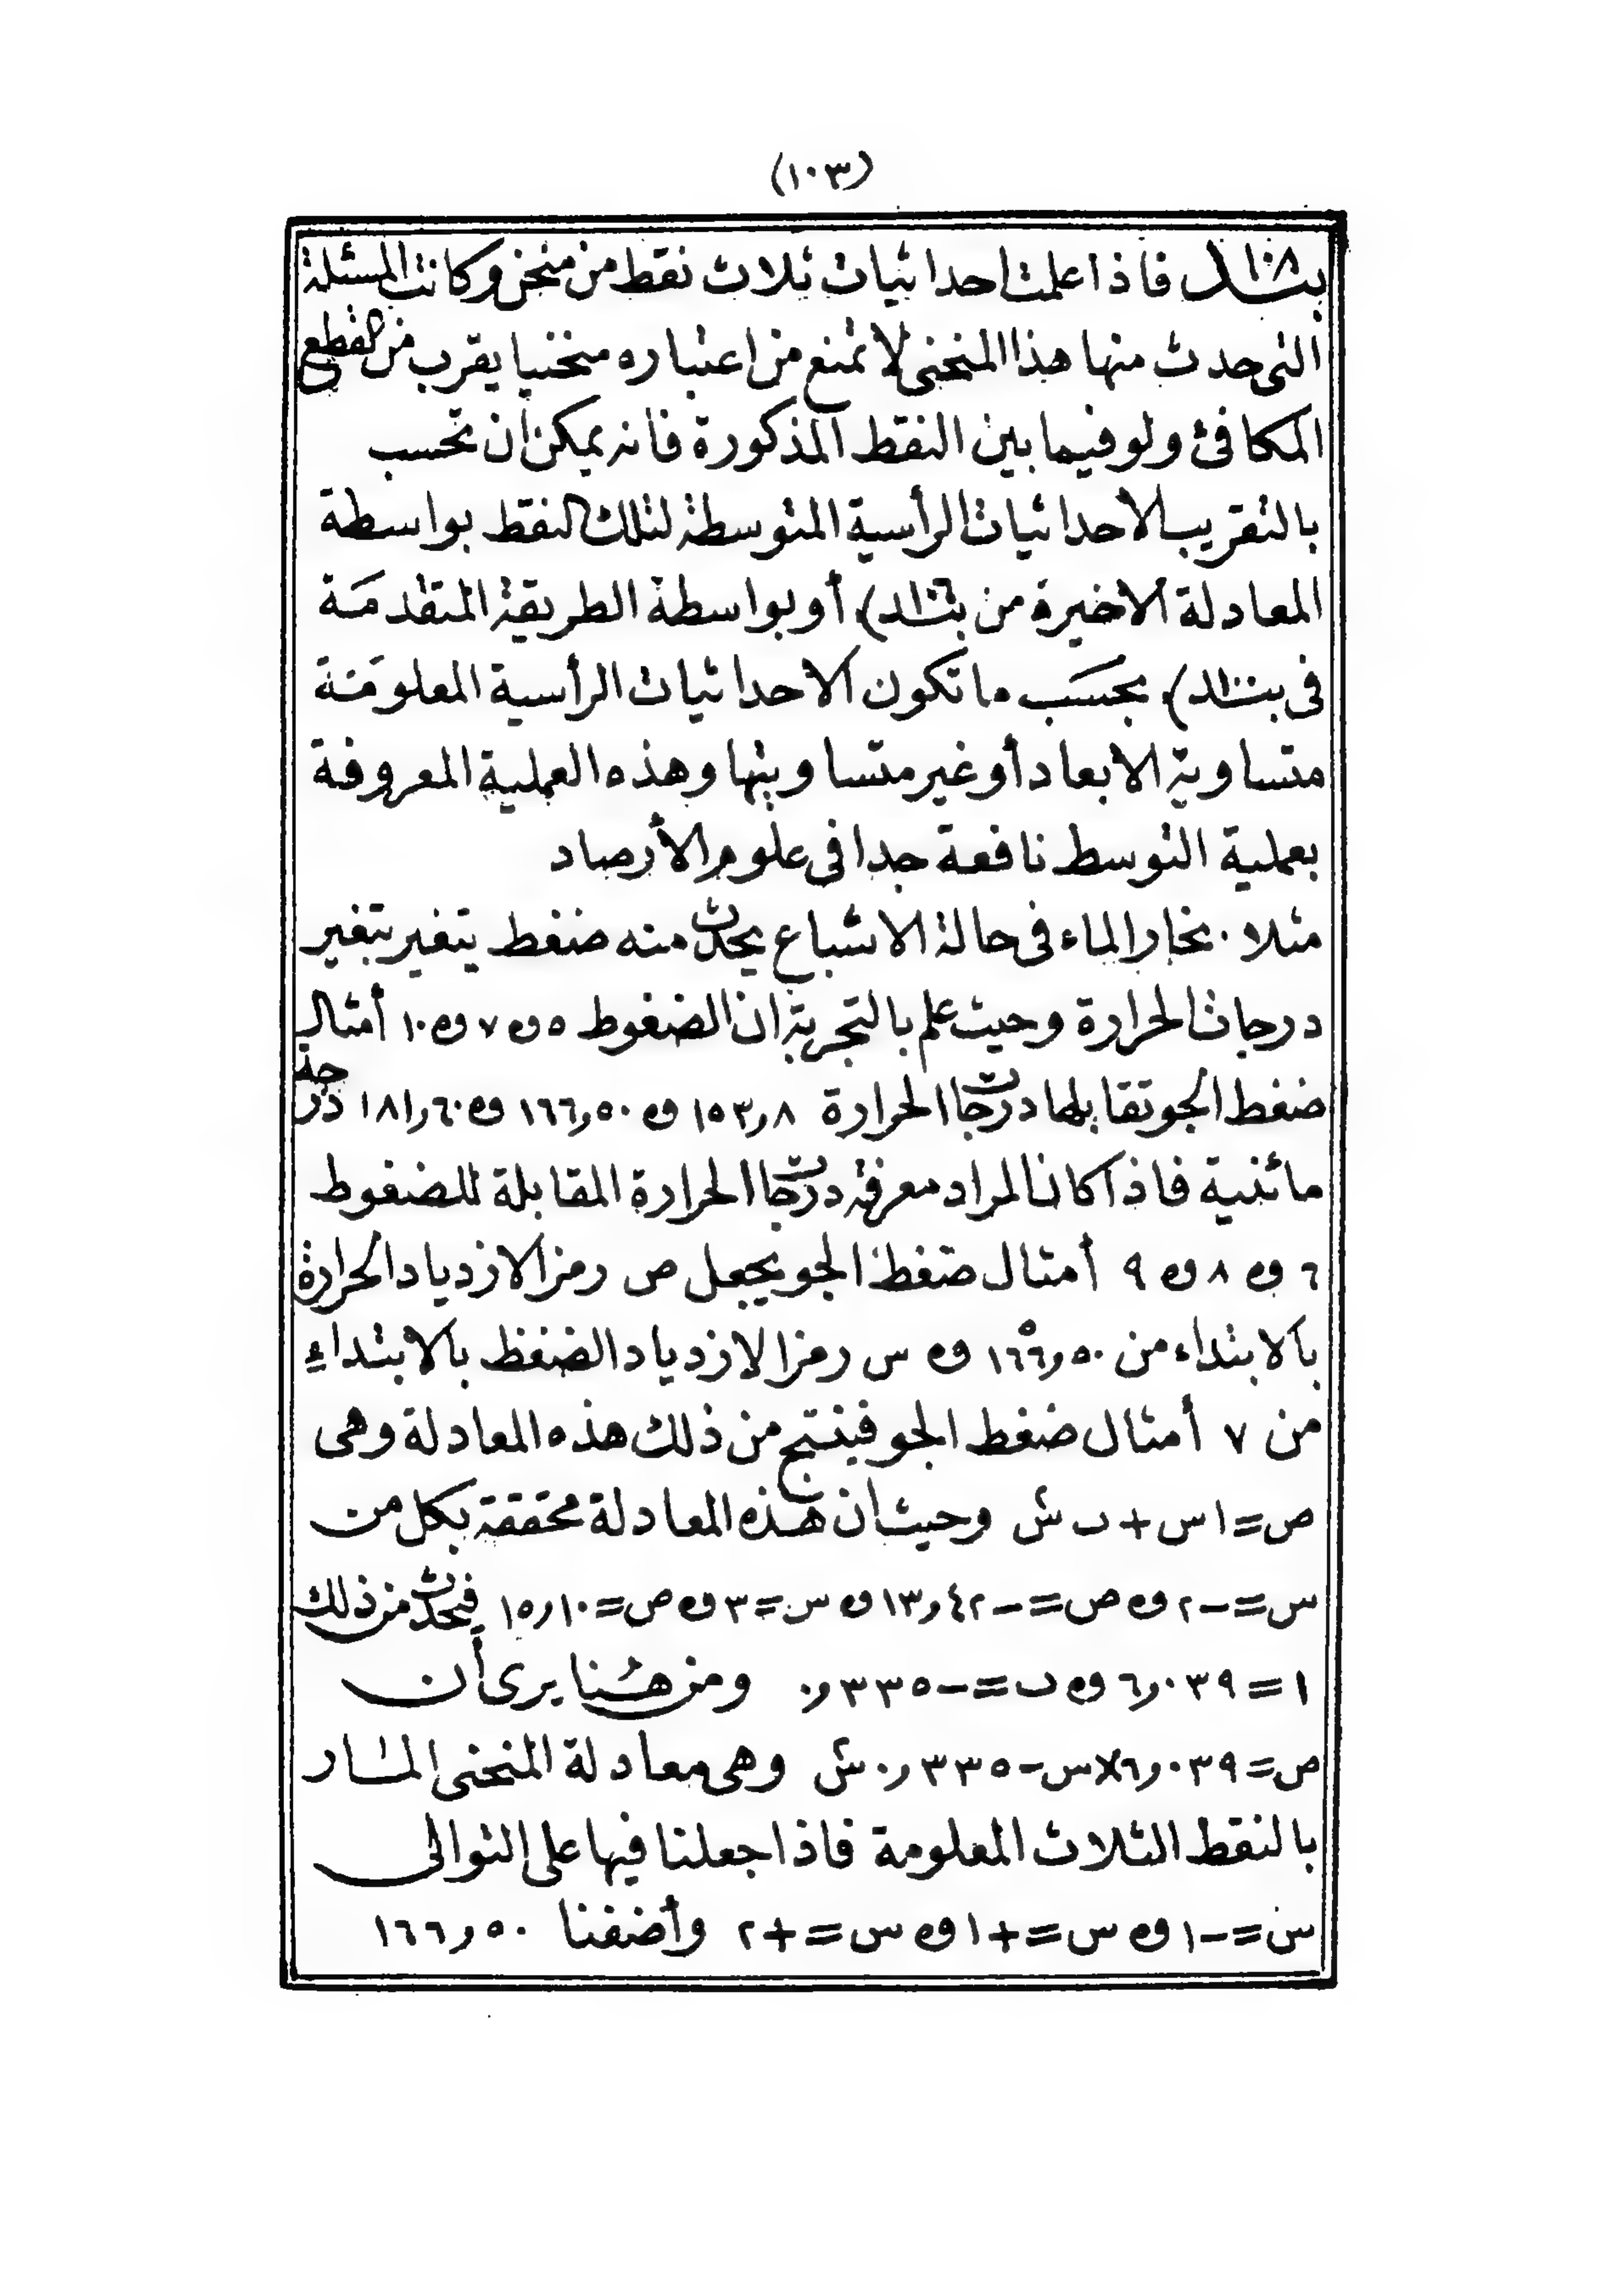 (١٠٣)
بند ١٠٨ فاذا علمت احداثيات ثلاث نقط من منحن وكانت المسئلة
التى حدث منها هذا المنحنى لا تمنع من اعتباره منحنيا يقرب من القطع
المكافئ ولو فيما بين النقط المذكورة فانه يمكن ان تحسب
بالتقريب الاحداثيات الرأسية المتوسطة لتلك النقط بواسطة
المعادلة الاخيرة من (بند ١٠٦) أو بواسطة الطريقة المتقدمة
فى (بند ١٠٠) بحسب ما تكون الاحداثيات الرأسية المعلومة
متساوية الابعاد أو غير متساويتها وهذه العملية المعروفة
بعملية التوسط نافعة جدا فى علوم الأرصاد
مثلا . بخار الماء فى حالة الاشباع يحدث منه ضغط يتغير بتغير
درجات الحرارة وحيث علم بالتجربة ان الضغوط ٥ و ٧ و ١٠ أمثال
ضغط الجو تقابلها درجات الحرارة ١٥٣٫٨ و ١٦٦٫٥٠ و ١٨١٫٦٠ درجة
مائنية فاذا كان المراد معرفة درجات الحرارة المقابلة للضغوط
٦ و ٨ و ٩ أمثال ضغط الجو يجعل ص رمز الازدياد الحرارة
بالابتداء من ١٦٦٫٥٠° و س رمزا لازدياد الضغط بالابتداء
من ٧ أمثال ضغط الجو فينتج من ذلك هذه المعادلة وهى
ص = ا س + ب س٢ وحيث ان هذه المعادلة محققة بكل من
س = -٢ و ص = -١٣٫٤٢ و س = ٣ و ص = ١٥٫١٠ فيحدث من ذلك
ا = ٦٫٠٣٩ و ب = -٠٫٣٣٥ ومن هنا يرى أن
ص = ٦٫٠٣٩ × س - ٠٫٣٣٥ س٢ وهى معادلة المنحنى المار
بالنقط الثلاث المعلومة فاذا جعلنا فيها على التوالى
س = -١ و س = +١ و س = +٢ وأضفنا ١٦٦٫٥٠